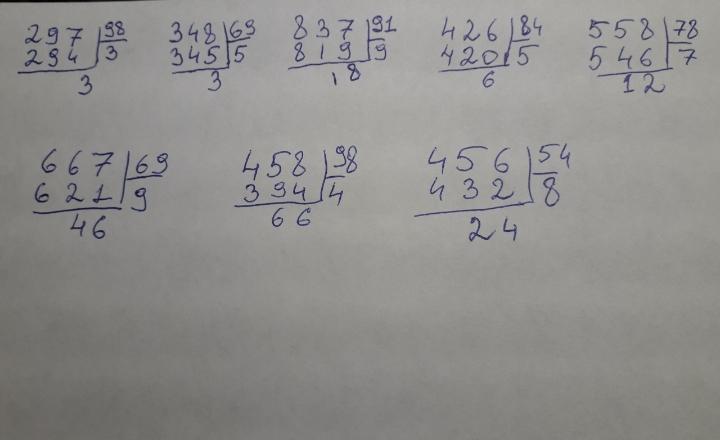 297 98 348 69 837 91 426 84 558 78
294 3 345 5 819 9 420 5 546 7
3 3 18 6 12
667 69 458 98 456 54
621 9 394 4 432 8
46 66 24